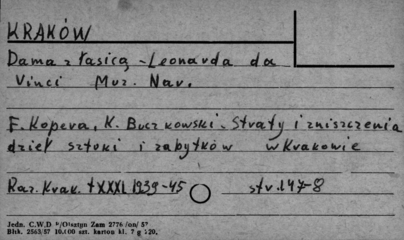 KRAKÓW
Dama z łasicą - Leonarda da
Vinci Muz. Nar.
F. Kopera, K. Buczkowski - Straty i zniszczenia
dzieł sztuki i zabytków w Krakowie
Roz. Krak. t XXXI 1939-45 str. 147-8
Jedn. C.W.D
Blhk. 2563/57 10.000 szt. karton kl. 7 g 120.